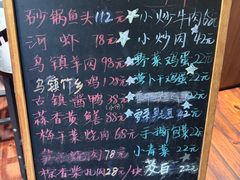 砂锅鱼头112元
河虾 78元
乌镇羊肉98元
乌镇竹乡鸡128元
古镇酱鸭38元
蒜香黄鳝88元
梅干菜烧肉68元
78元
28元/块
小炒牛肉
小炒肉42元
野菜鸡蛋22元
萝卜干鸡蛋22元
22元
手撕包菜22元
小青菜 22元
茭白 22元